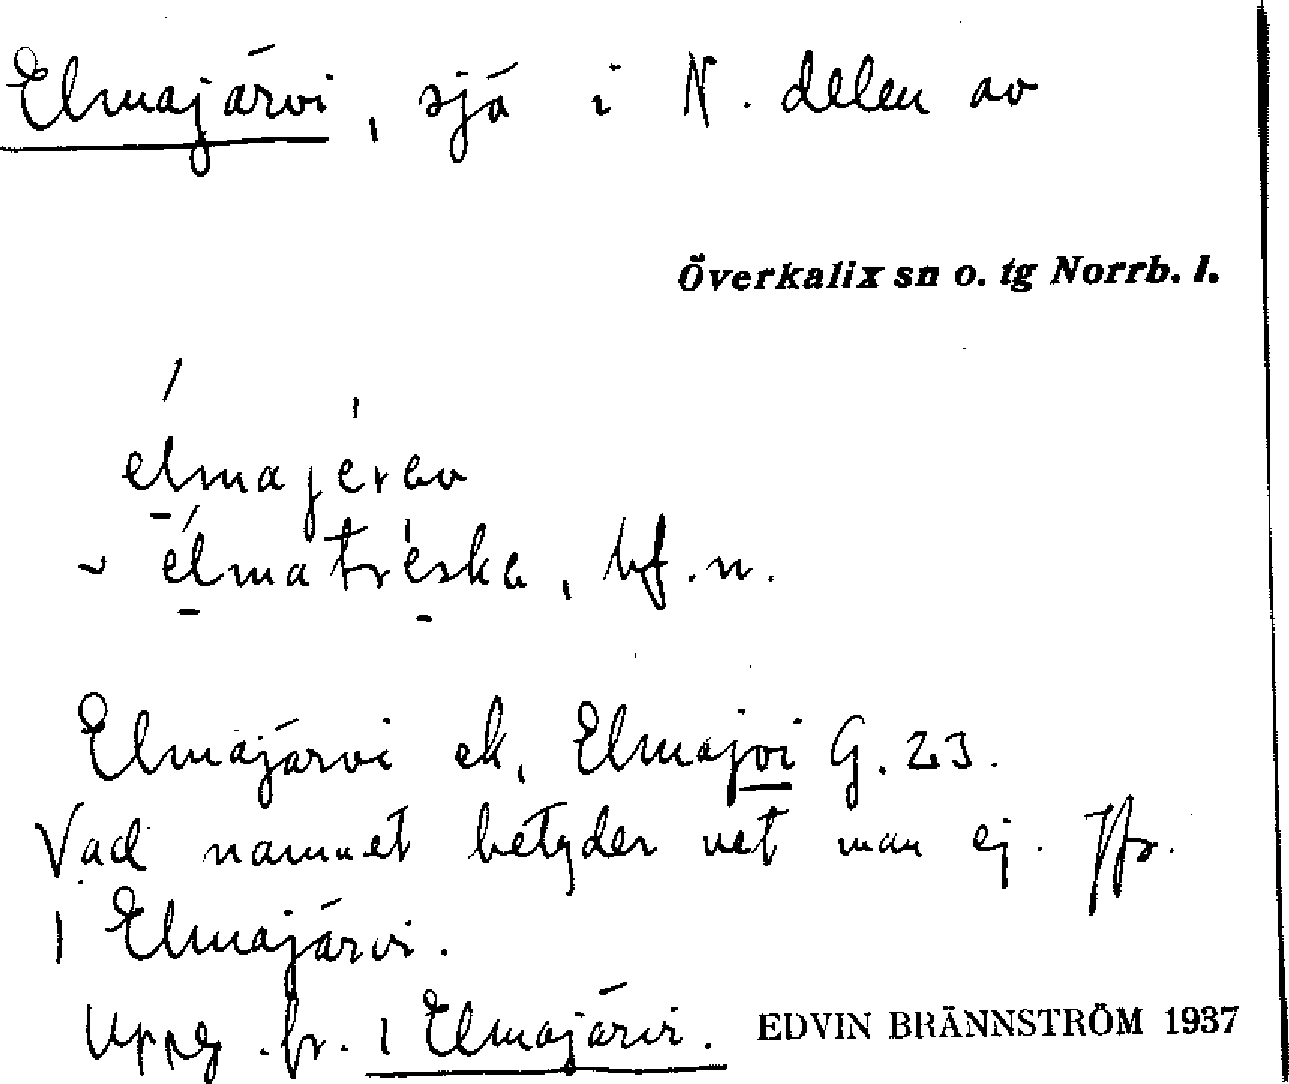 Elmajärvi, sjö i N. delen av
Överkalix sn o. tg Norrb. l.
elmajerav
~ elmatreska, bf. n.
Elmajärvi ek, Elmajvi G. 23.
Vad namnet betyder vet man ej. Jfr.
1 Elmajärvi.
Uppg. fr. 1 Elmajärvi.
EDVIN BRÄNNSTRÖM 1937